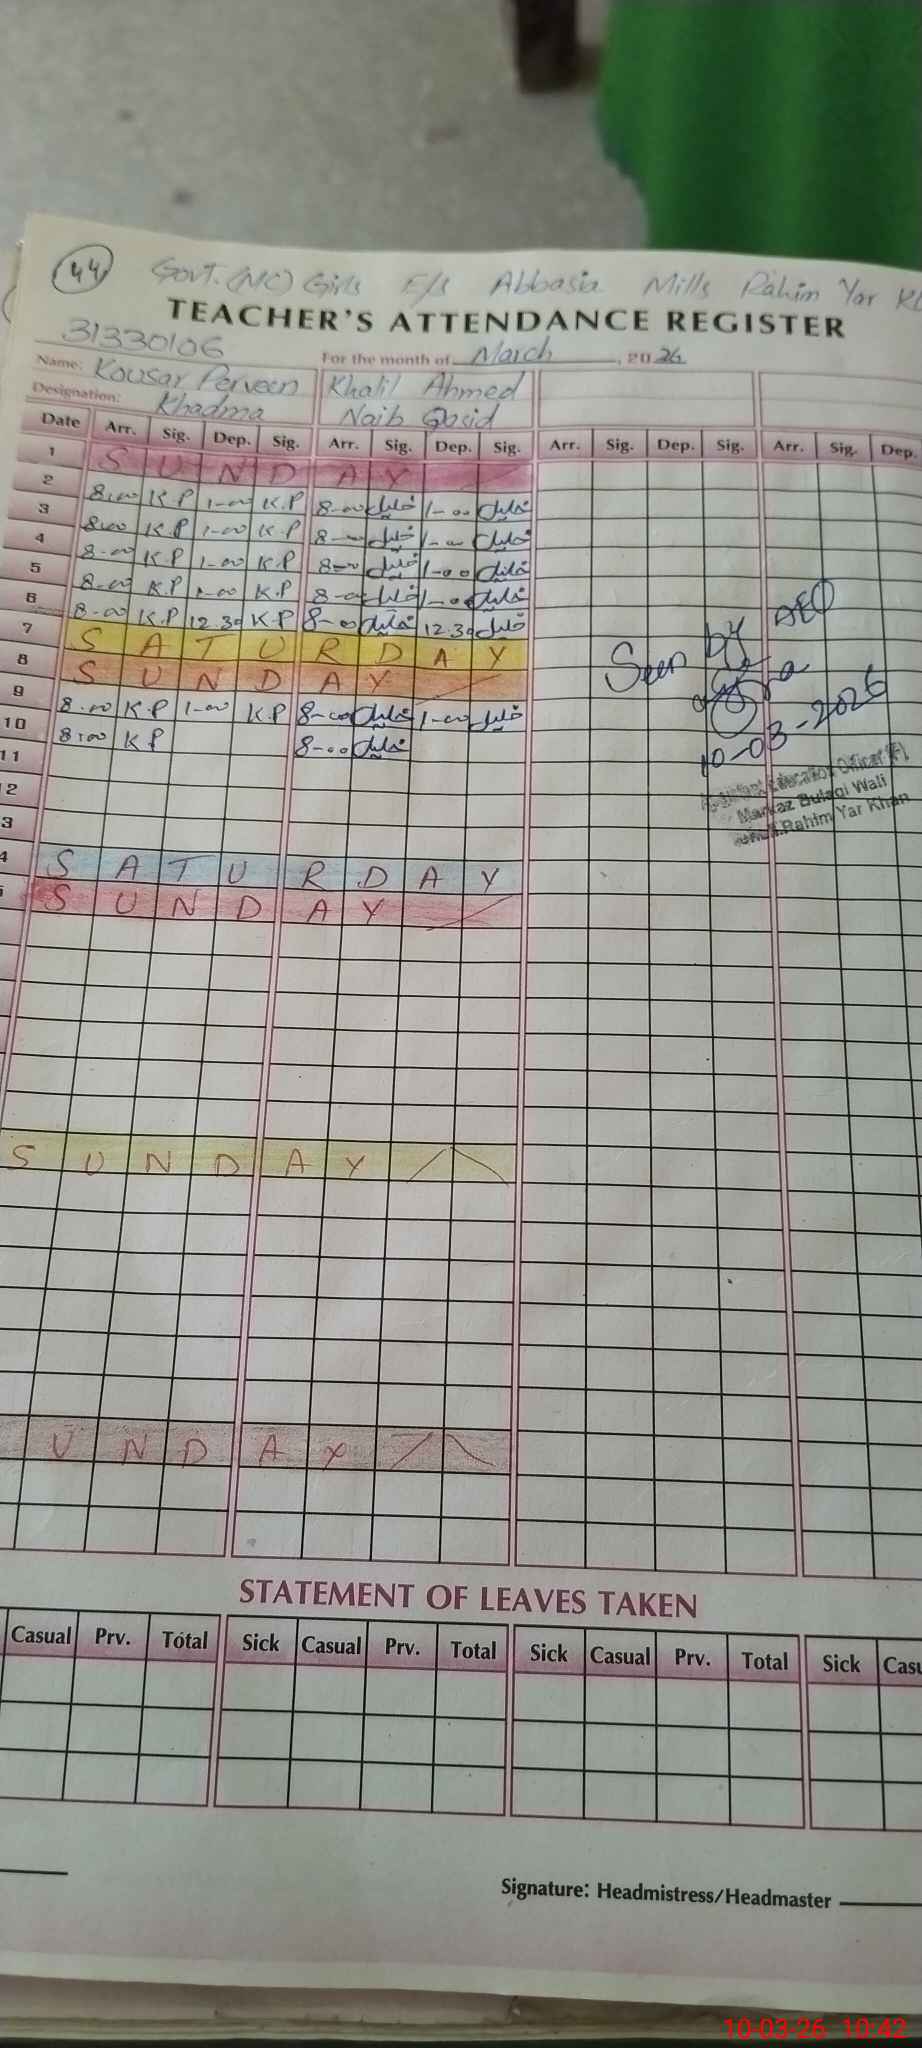 44 Govt. (MC) Girls E/S Abbasia Mills Rahim Yar
TEACHER'S ATTENDANCE REGISTER
31330106 For the month of March, 2026
Name: Kousar Perveen Khalil Ahmed
Designation: Khadma Naib Qasid
Date Arr. Sig. Dep. Sig. Arr. Sig. Dep. Sig. Arr. Sig. Dep. Sig. Arr. Sig. Dep.
1 S U N D A Y
2 8-00 K.P 1-00 K.P 8-00 خلیل 1-00 خلیل
3 8-00 K.P 1-00 K.P 8-00 خلیل 1-00 خلیل
4 8-00 K.P 1-00 K.P 8-00 خلیل 1-00 خلیل
5 8-00 K.P 1-00 K.P 8-00 خلیل 1-00 خلیل
6 8-00 K.P 12.30 K.P 8-00 خلیل 12.30 خلیل
7 S A T U R D A Y
8 S U N D A Y
9 8-00 K.P 1-00 K.P 8-00 خلیل 1-00 خلیل
10 8-00 K.P 8-00 خلیل
11
12
3
4 S A T U R D A Y
S U N D A Y
Seen by AEO
10-03-2026
Education Officer (F)
Markaz Bulaqi Wali
Rahim Yar Khan
S U N D A Y
U N D A Y
STATEMENT OF LEAVES TAKEN
Casual Prv. Total Sick Casual Prv. Total Sick Casual Prv. Total Sick
Signature: Headmistress/Headmaster
10-03-26 10:42